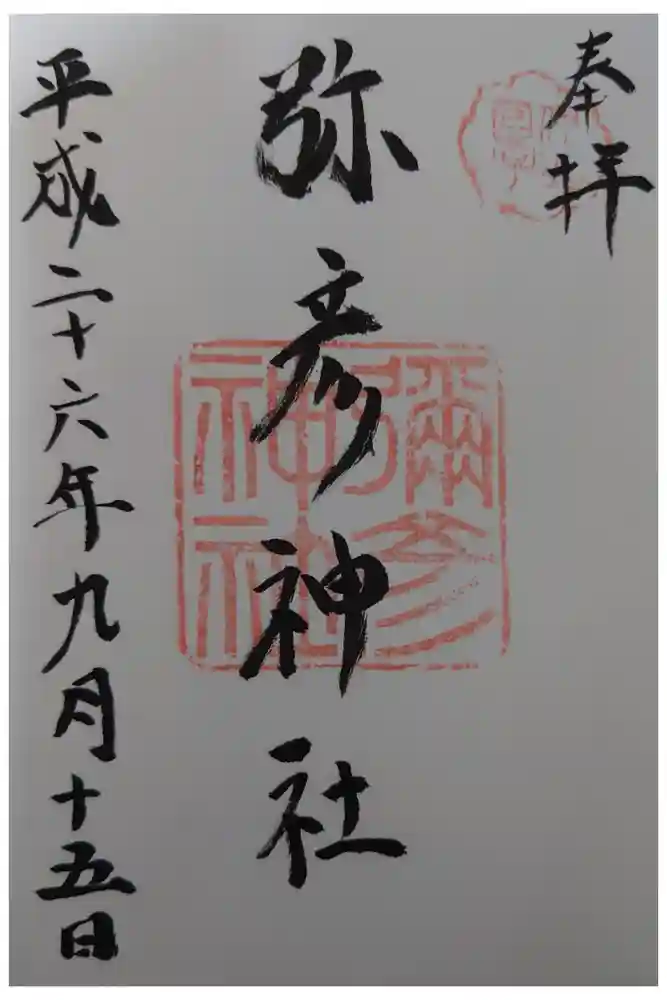 奉拝
弥彦神社
彌彦神社
平成二十六年九月十五日